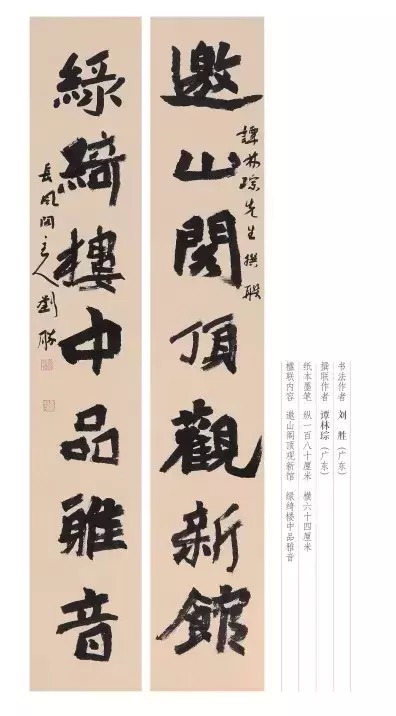 书法作者 刘 胜（广东）
撰联作者 谭林琮（广东）
纸本墨笔 纵一百八十厘米 横六十四厘米
楹联内容 邀山阁顶观新馆 绿绮楼中品雅音
邀山閣頂觀新館
譚林琮先生撰联
緑綺樓中品雅音
長風閣主人劉勝